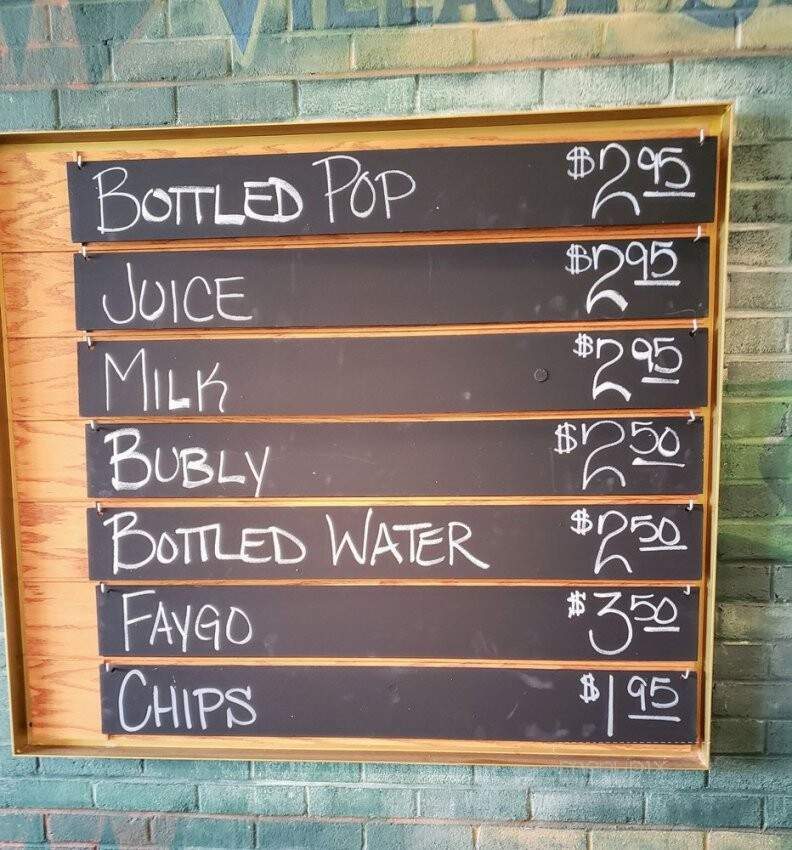 VILLAGE
BOTTLED POP $2.95
JUICE $2.95
MILK $2.95
BUBLY $2.50
BOTTLED WATER $2.50
FAYGO $3.50
CHIPS $1.95